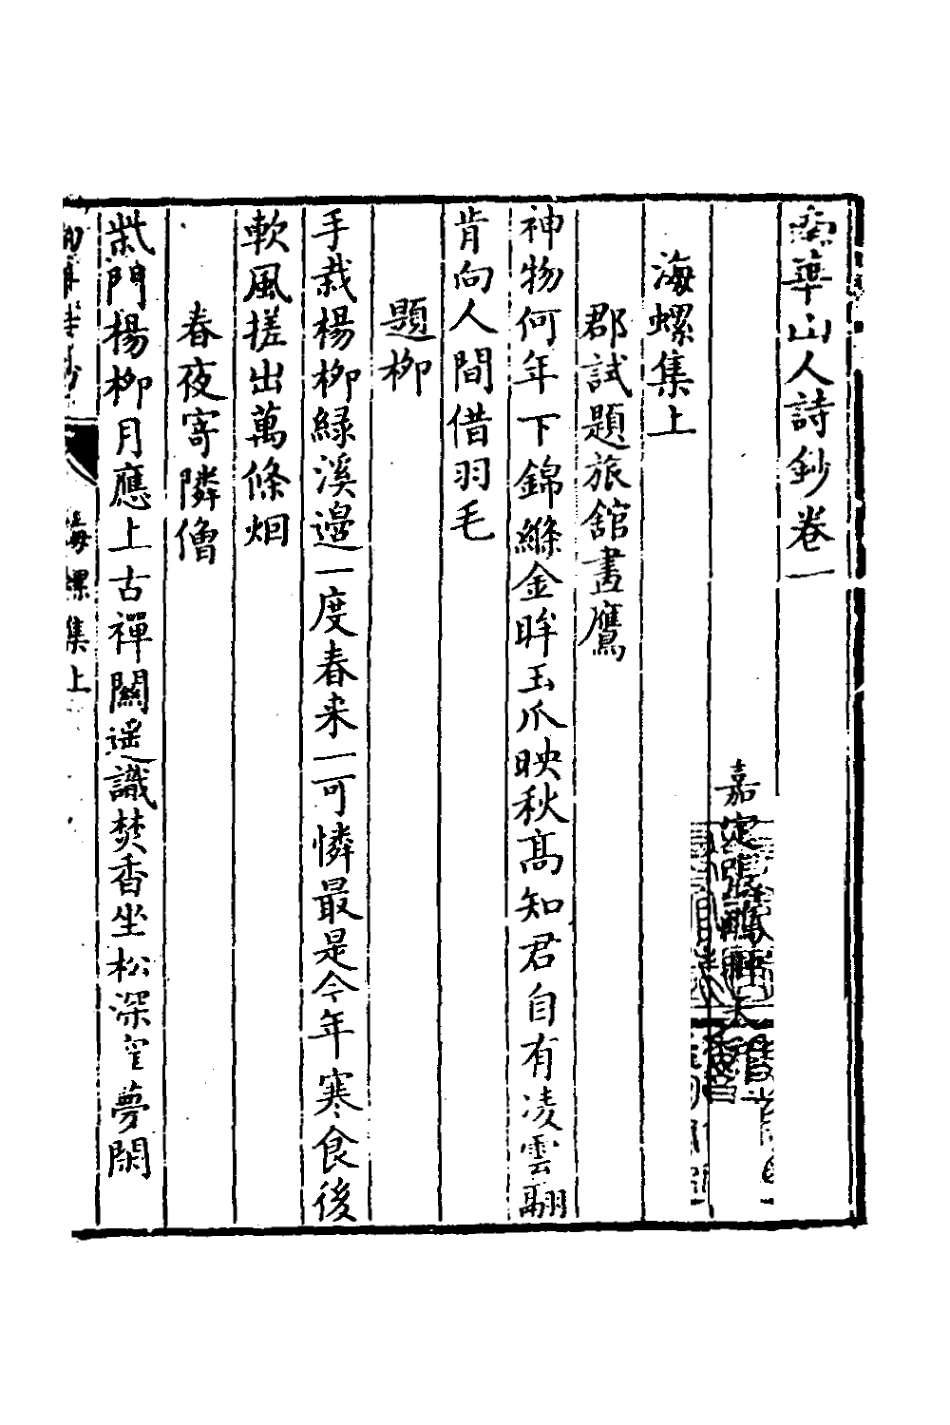 華山人詩鈔卷一
嘉定張鵬
海螺集上
郡試題旅舘畫鷹
神物何年下錦縧金眸玉爪映秋髙知君自有凌雲翮
肯向人間借羽毛
題栁
手栽楊栁緑溪邉一度春来一可憐最是今年寒食後
軟風搓出萬條烟
春夜寄隣僧
柴門楊栁月應上古禪關遥識焚香坐松深夢閑
海螺集上